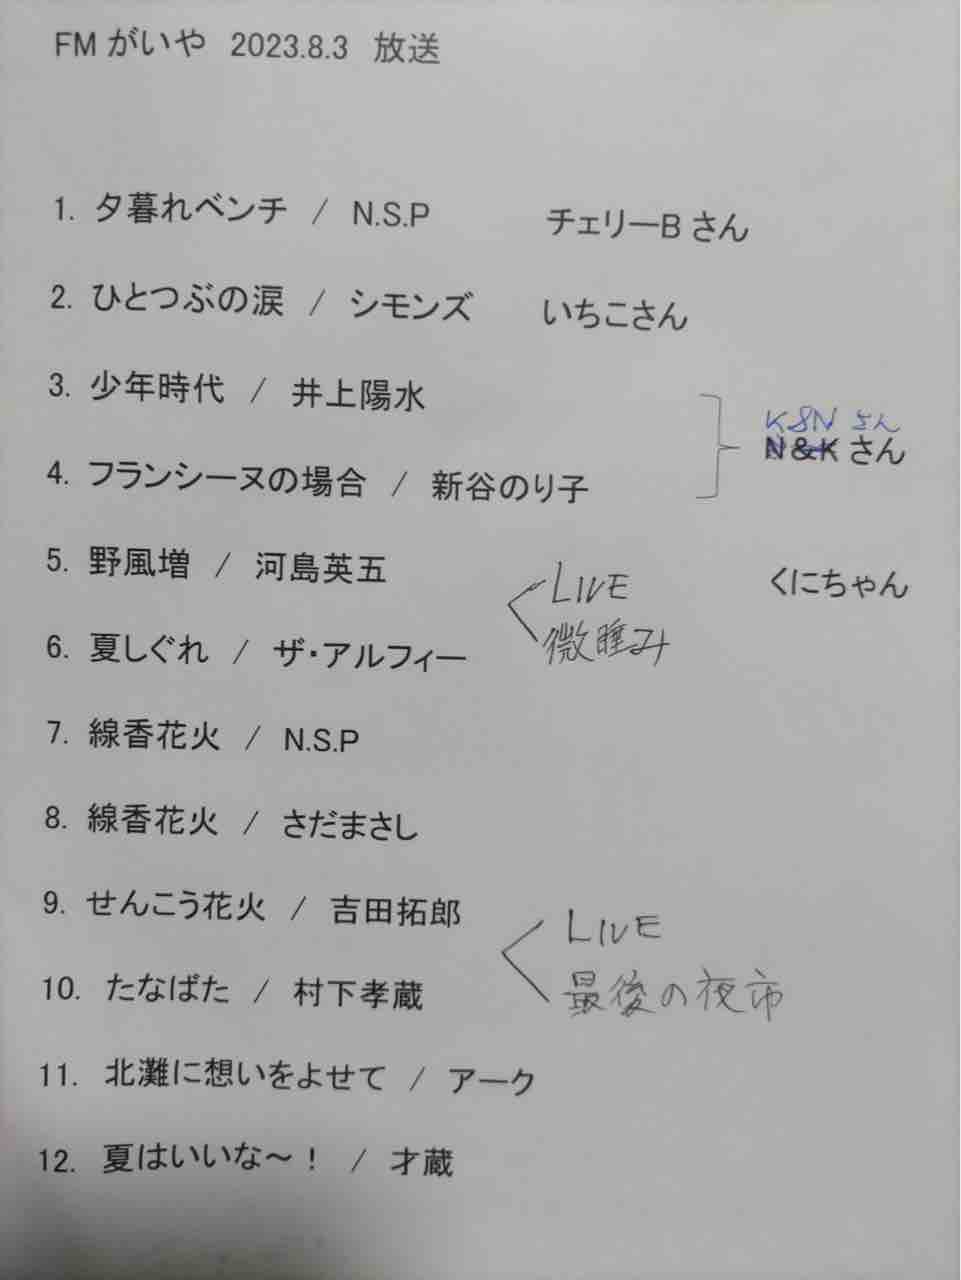 FM がいや 2023.8.3 放送
1. 夕暮れベンチ / N.S.P チェリーB さん
2. ひとつぶの涙 / シモンズ いちこさん
3. 少年時代 / 井上陽水
K&N さん
N&K さん
4. フランシーヌの場合 / 新谷のり子
5. 野風増 / 河島英五 くにちゃん
LIVE
微睡み
6. 夏しぐれ / ザ・アルフィー
7. 線香花火 / N.S.P
8. 線香花火 / さだまさし
9. せんこう花火 / 吉田拓郎
LIVE
最後の夜市
10. たなばた / 村下孝蔵
11. 北灘に想いをよせて / アーク
12. 夏はいいな～！ / 才蔵